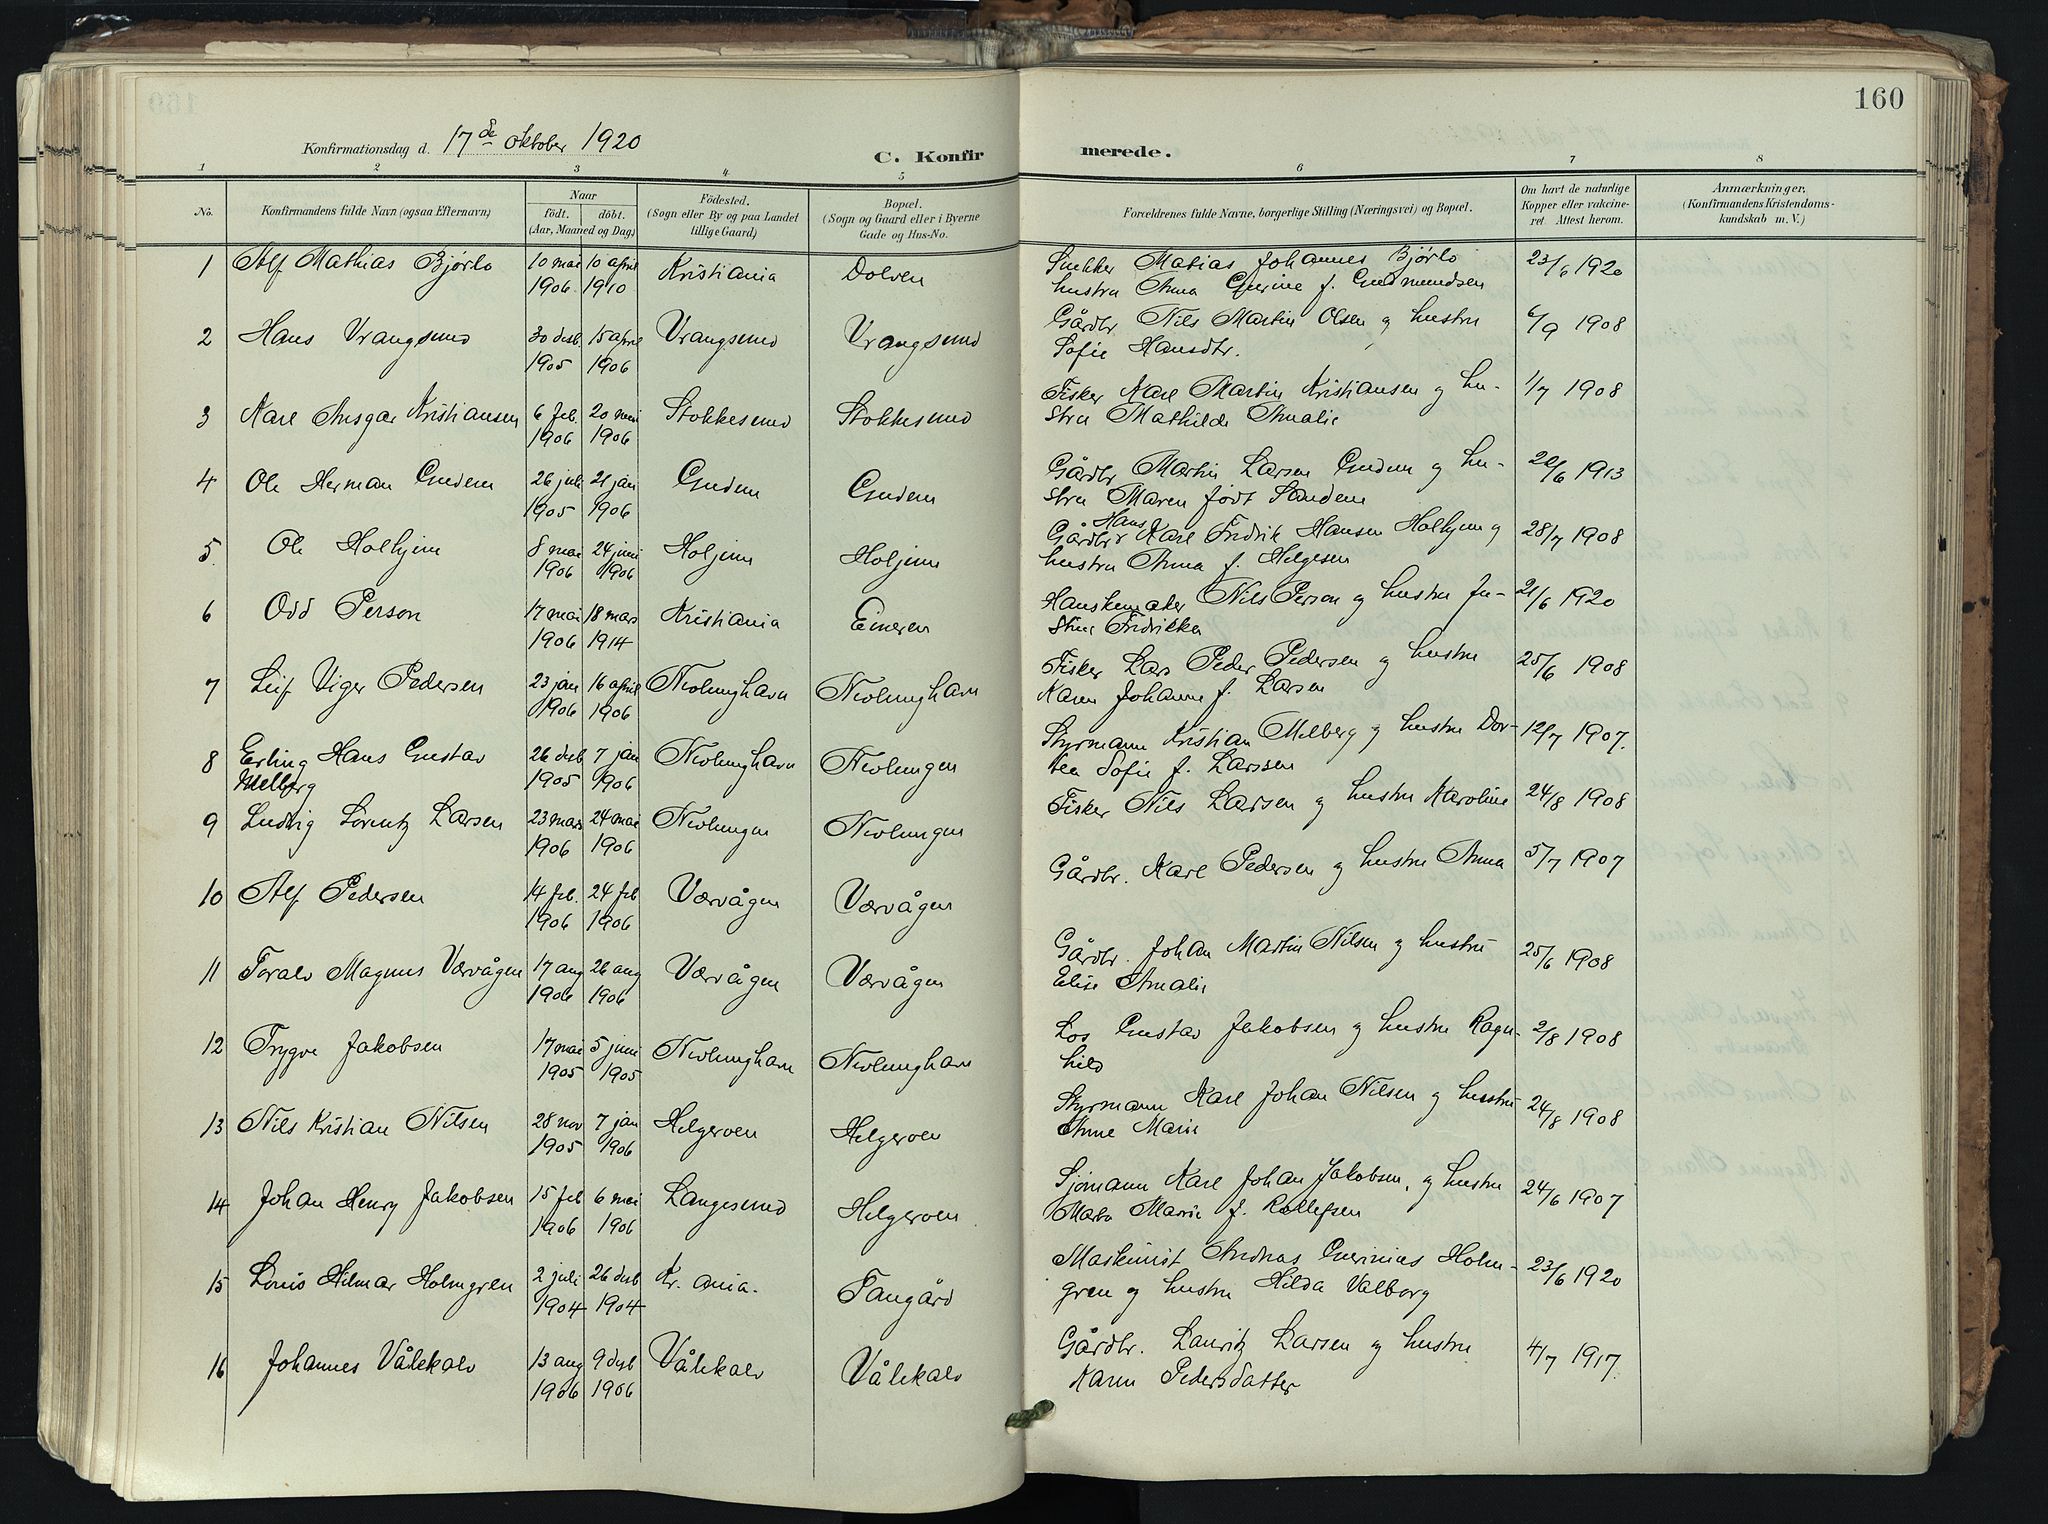 160
Konfirmationsdag d. 17de oktober 1920
C. Konfirmerede.
1 2 3 4 5 6 7 8
No. | Konfirmandens fulde Navn (ogsaa Efternavn) | Naar født. døbt. (Aar, Maaned og Dag) | Födested. (Sogn eller By og paa Landet tillige Gaard) | Bopæl. (Sogn og Gaard eller i Byerne Gade og Hus-No. | Forældrenes fulde Navne, borgerlige Stilling (Næringsvei) og Bopæl. | Om havt de naturlige Kopper eller vakcineret. Attest herom. | Anmærkninger. (Konfirmandens Kristendomskundskab m. V.)
1 Alf Mathias Bjørlo | 10 mai 1906 | 10 april 1910 | Kristiania | Dolven | Snekker Matias Johannes Bjørlo hustru Anna Gurine f. Gudmundsen | 23/6 1920
2 Hans Vrangsund | 30 desb. 1905 | 15 april 1906 | Vrangsund | Vrangsund | Gårdbr. Nils Martin Olsen og hustru Sofie Hansdtr. | 6/9 1908
3 Karl Ansgar Kristiansen | 6 feb. 1906 | 20 mai 1906 | Stokkesund | Stokkesund | Fisker Karl Martin Kristiansen og hustru Mathilde Amalie | 1/7 1908
4 Ole Herman Gudem | 26 juli 1905 | 21 jan 1906 | Gudem | Gudem | Gårdbr Martin Larsen Gudem og hustru Maren født Sandem | 22/6 1913
5. Ole Holhjem | 8 mai 1906 | 24 juni 1906 | Holjem | Holjem | Gårdbr Hans Karl Fredrik Hansen Holhjem og hustru Anna f. Helgesen | 28/7 1908
6 Odd Person | 17 mai 1906 | 18 mars 1914 | Kristiania | Eineren | Hanskemaker Nils Person og hustru Justine Fredrikke | 21/6 1920
7 Leif Viger Pedersen | 23 jan 1906 | 16 april 1906 | Nevlunghavn | Nevlunghavn | Fisker Lars Peder Pedersen og hustru Karen Johanne f. Larsen | 25/6 1908
8 Erling Hans Gustav Melberg | 26 desb 1905 | 7 jan 1906 | Nevlunghavn | Nevlungen | Styrmann Kristian Melberg og hustru Dortea Sofie f. Larssen | 12/7 1907.
9 Ludvig Lorentz Larsen | 23 mars 1906 | 24 mai 1906 | Nevlungen | Nevlungen | Fisker Nils Larsen og hustru Karoline | 24/8 1908
10 Alf Pedersen | 14 feb. 1906 | 24 feb 1906 | Værvågen | Værvågen | Gårdbr. Karl Pedersen og hustru Anna | 5/7 1907
11 Toralv Magnus Værvågen | 17 aug 1906 | 26 aug 1906 | Værvågen | Værvågen | Gårdbr. Johan Martin Nilsen og hustru Elise Amalie | 25/6 1908
12 Trygve Jakobsen | 17 mai 1905 | 5 juni 1905 | Nevlunghavn | Nevlunghavn | Los Gustav Jakobsen og hustru Ragnhild | 2/8 1908
13 Nils Kristian Nilsen | 28 nov 1905 | 7 jan 1906 | Helgeroen | Helgeroen | Styrmann Karl Johan Nilsen og hustru Anne Marie | 24/8 1908
14 Johan Henry Jakobsen | 15 feb 1906 | 6 mai 1906 | Langesund | Helgeroen | Sjømann Karl Johan Jakobsen, og hustru Marta Marie f. Rollefsen | 24/6 1907
15 Louis Hilmar Holmgren | 2 juli 1904 | 26 desb 1904 | Kr. ania. | Fangård | Maskinist Andreas Guerinius Holmgren og hustru Hilda Valborg | 23/6 1920
16 Johannes Vålekalv | 13 aug 1906 | 9 desb 1906 | Vålekalv | Vålekalv | Gårdbr. Lauritz Larsen og hustru Karen Pedersdatter | 4/7 1917.